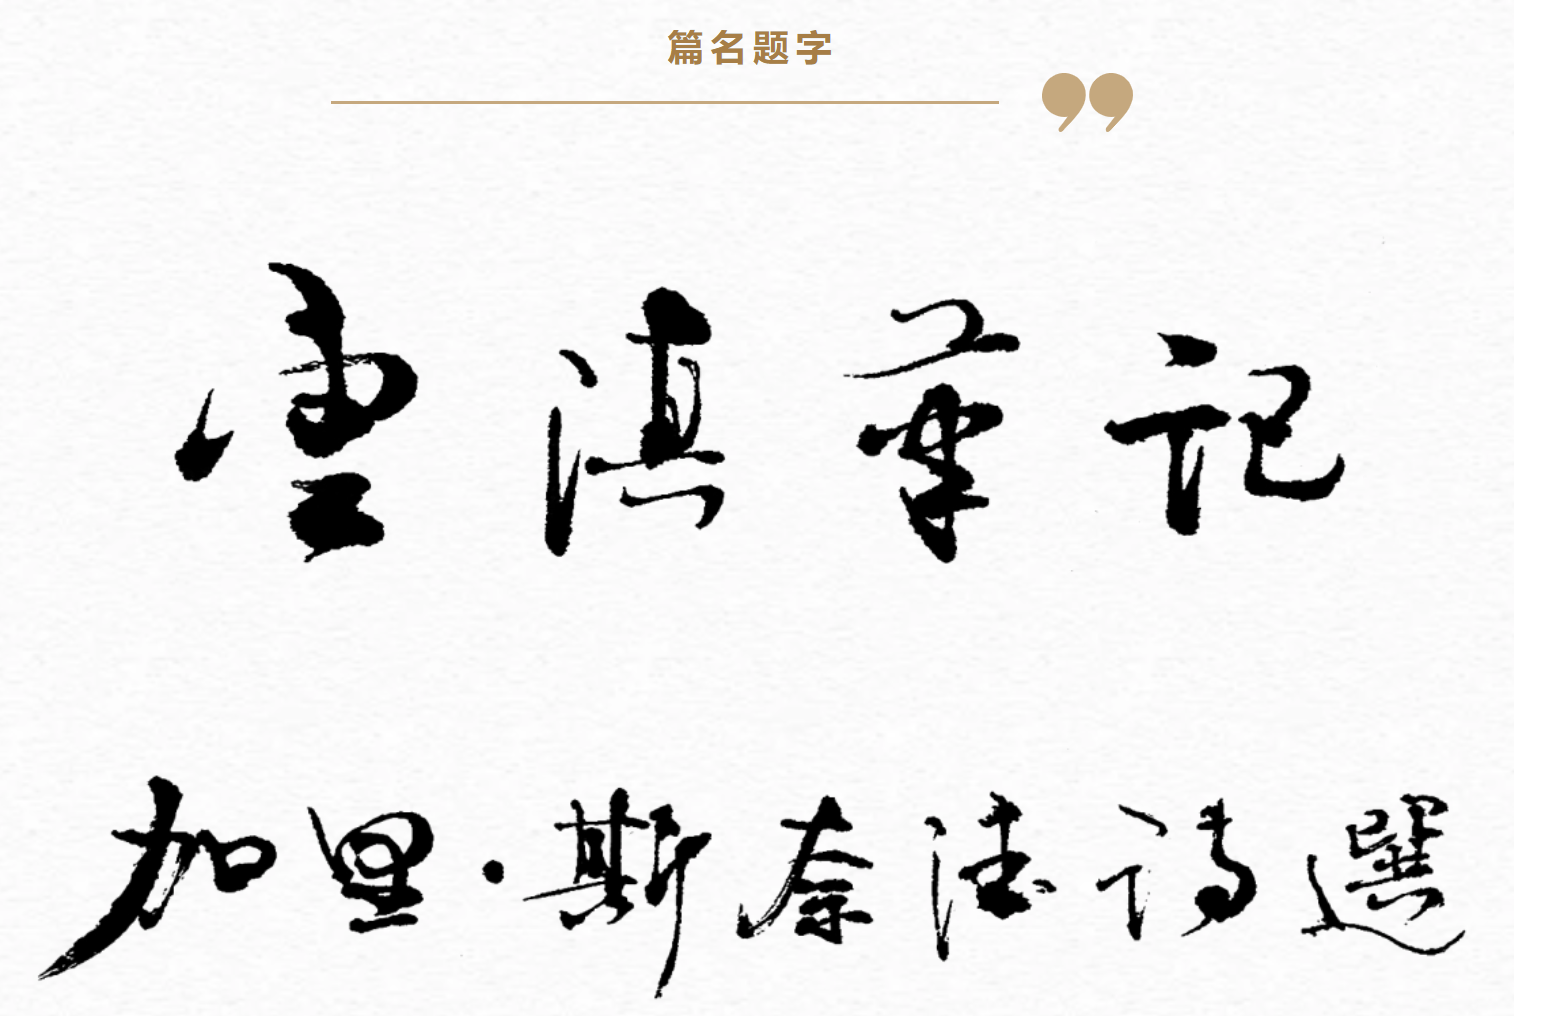 篇名题字
雲滇筆記
加里·斯奈德詩選